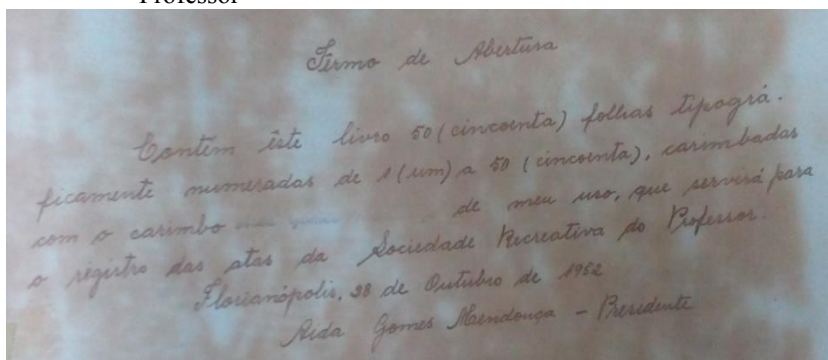 Professor
Têrmo de Abertura
Contém êste livro 50 (cincoenta) folhas tipográ-
ficamente numeradas de 1 (um) a 50 (cincoenta), carimbadas
com o carimbo de meu uso, que servirá para
o registro das atas da Sociedade Recreativa do Professor.
Florianópolis, 28 de Outubro de 1952
Aida Gomes Mendonça - Presidente